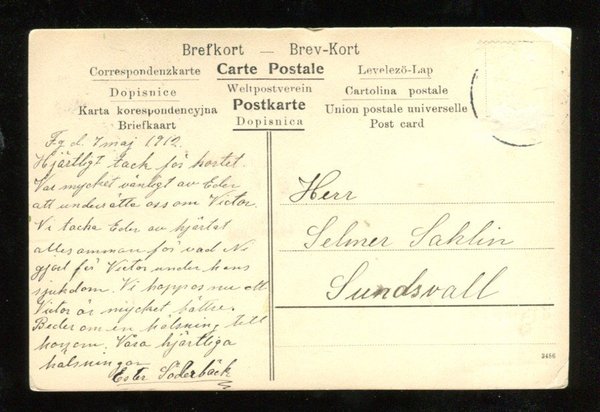 Brefkort — Brev-Kort
Correspondenzkarte Carte Postale Levelező-Lap
Dopisnice Weltpostverein Cartolina postale
Karta korespondencyjna Postkarte Union postale universelle
Briefkaart Dopisnica Post card
Fg d. 7 maj 1912.
Hjärtligt tack för kortet.
Var mycket vänligt av Eder
att underätta oss om Victor.
Vi tacka Eder av hjärtat
allesamman för vad Ni
gjort för Victor under hans
sjukdom. Vi hoppas nu att
Victor är mycket bättre.
Beder om en hälsning till
honom. Våra hjärtliga
hälsningar
Ester Söderbäck
Herr
Selmer Sahlin
Sundsvall
3456